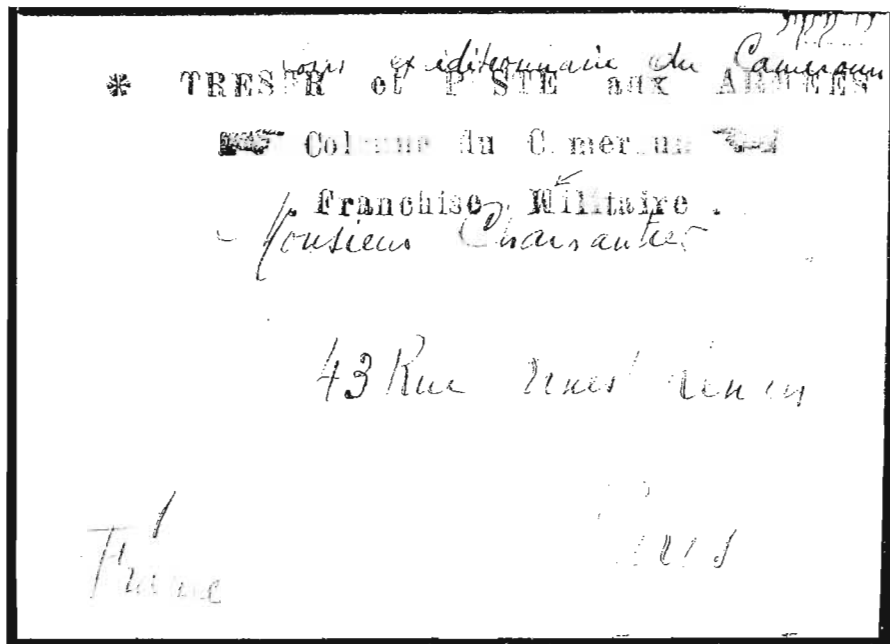 Corps expéditionnaire du Cameroun
* TRESOR et POSTE aux ARMEES
Colonne du Cameroun
Franchise Militaire.
Monsieur
43 Rue Ernest Renan
Paris
France